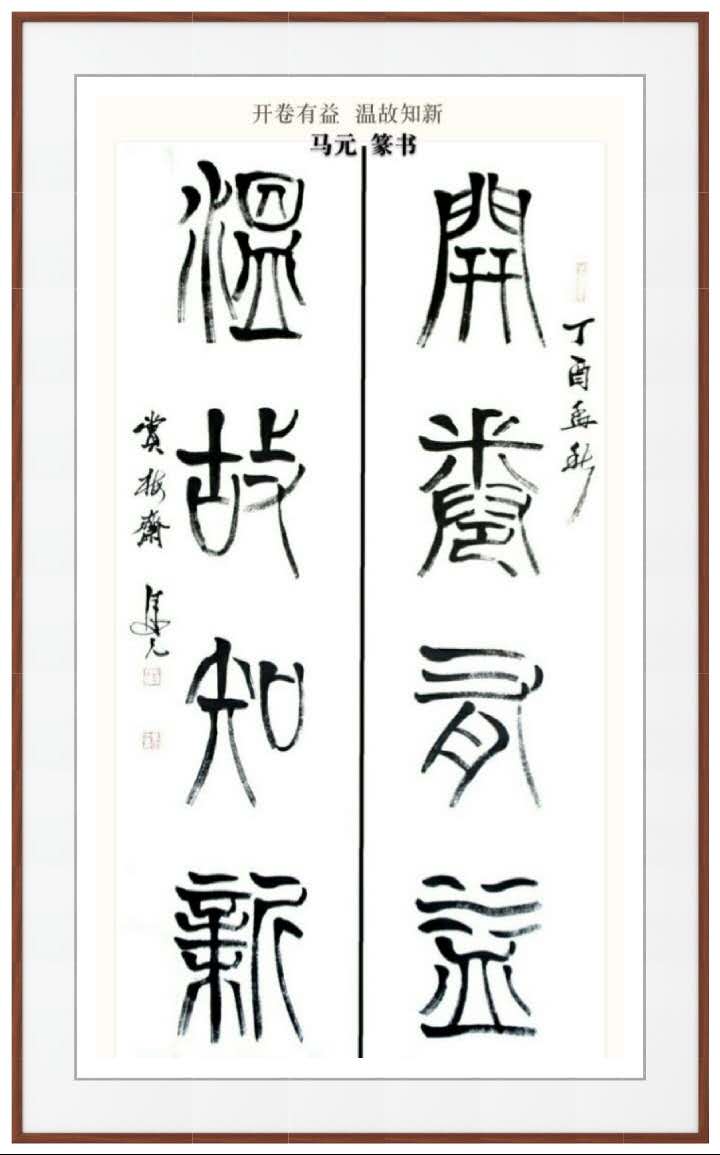 开卷有益 温故知新
马元 篆书
丁酉孟秋
開卷有益
温故知新
賞梅齋 馬元